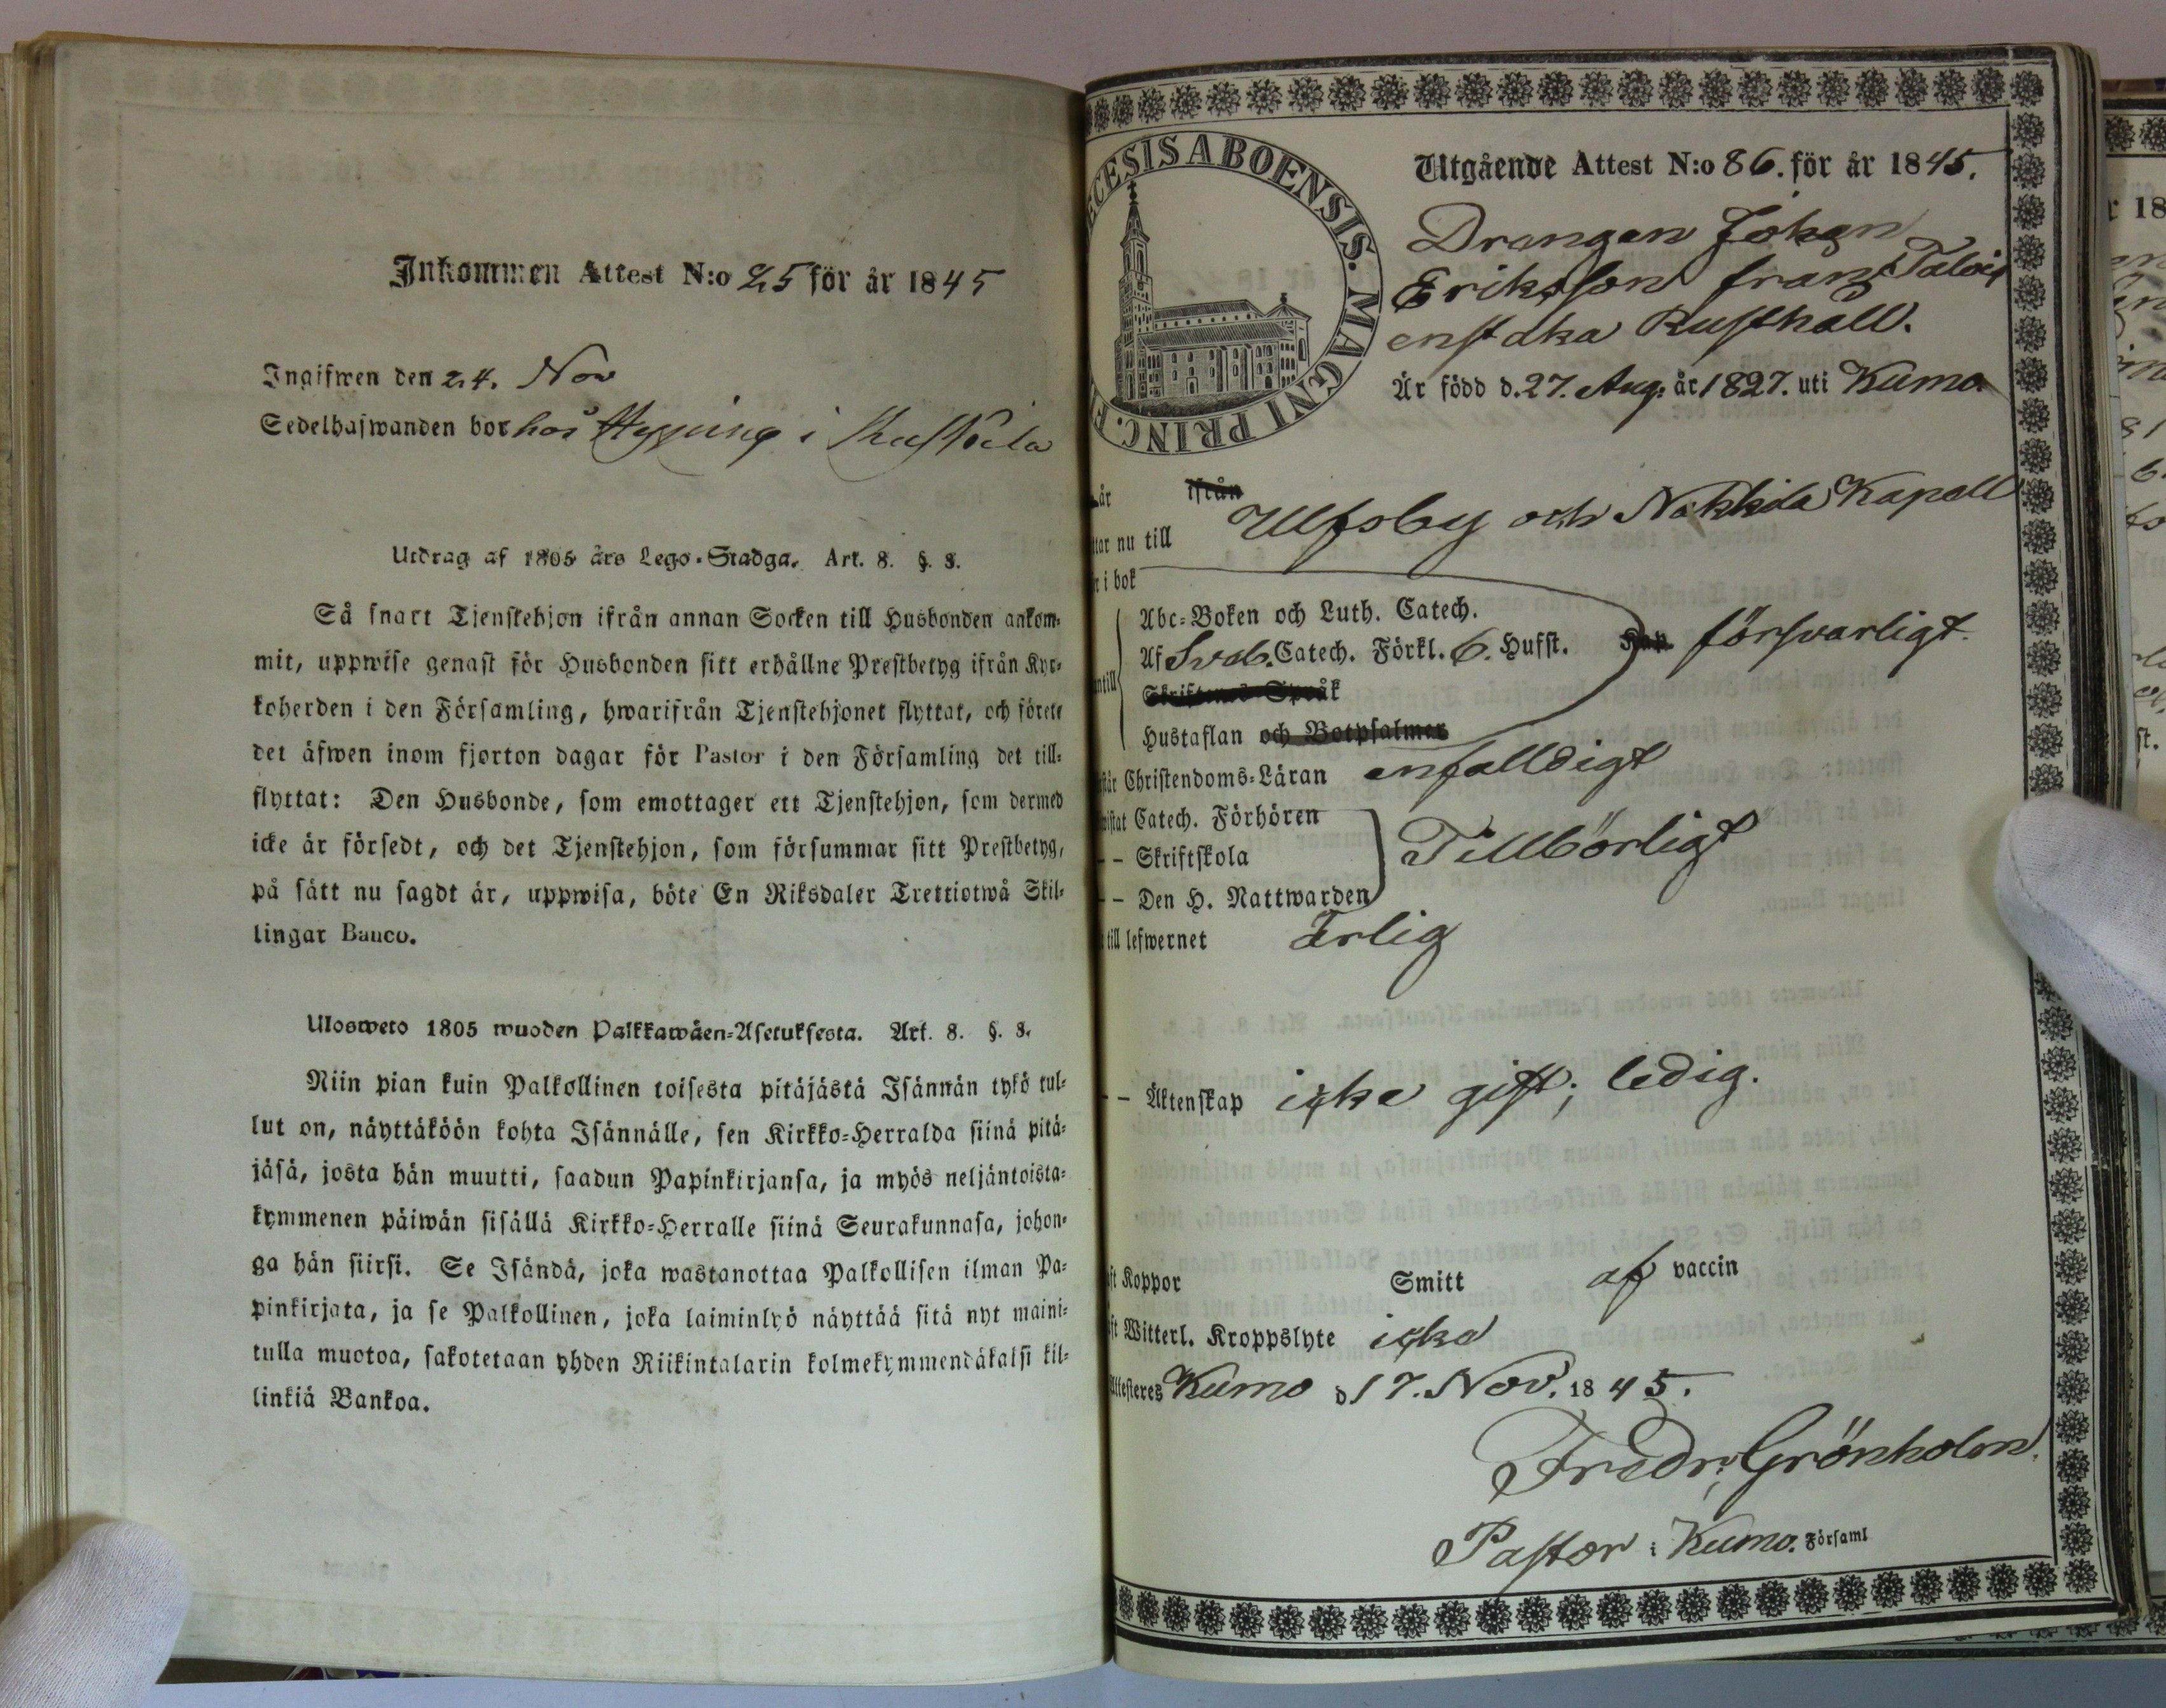 Inkommen Attest N:o 25 för år 1845
Ingifwen den 24. Nov
Sedelhafwanden bor hos Hyping i
Utdrag af 1805 års Lego-Stadga. Art. 8. §. 8.
Så snart Tjenstehjon ifrån annan Socken till Husbonden ankom-
mit, uppwise genast för Husbonden sitt erhållne Prestbetyg ifrån Kyr-
koherden i den Församling, hwarifrån Tjenstehjonet flyttat, och förete
det äfwen inom fjorton dagar för Pastor i den Församling det till-
flyttat: Den Husbonde, som emottager ett Tjenstehjon, som dermed
icke är försedt, och det Tjenstehjon, som försummar sitt Prestbetyg,
på sätt nu sagdt är, uppwisa, böte En Riksdaler Trettiotwå Skil-
lingar Banco.
Ulosweto 1805 wuoden Palkkawäen-Asetuksesta. Art. 8. §. 8.
Niin pian kuin Palkollinen toisesta pitäjästä Isännän tykö tul-
lut on, näyttäköön kohta Isännälle, sen Kirkko-Herralda siinä pitä-
jäsä, josta hän muutti, saadun Papinkirjansa, ja myös neljäntoista-
kymmenen päiwän sisällä Kirkko-Herralle siinä Seurakunnasa, johon-
ga hän siirsi. Se Isändä, joka wastanottaa Palkollisen ilman Pa-
pinkirjata, ja se Palkollinen, joka laiminlyö näyttää sitä nyt maini-
tulla muotoa, sakotetaan yhden Riikintalarin kolmekymmendäkaksi kil-
linkiä Bankoa.
ECESIS ABOENSIS. MAGNI PRINC. F
Utgående Attest N:o 86. för år 1845.
Drengen Johan
Eriksson från
enstaka Rusthåll.
Är född d. 27. Aug. år 1827. uti Kumo
år ifrån
ttar nu till Ulfsby och Nakkila Kapell
r i bok
Abc-Boken och Luth. Catech.
Af Sveb. Catech. Förkl. 6. Hufst. Kap. försvarligt.
ntill
Skriftenes Språk
Hustaflan och Botpsalmer
står Christendoms-Läran enfalldigt
wistat Catech. Förhören
- - Skriftskola Tillbörligt
- - Den H. Nattwarden
till lefwernet Ärlig
- - Äktenskap icke gift; ledig.
ft Koppor Smitt af vaccin
ft Witterl. Kroppslyte icke
Attesteres Kumo d 17. Nov. 1845.
Fredr. Grönholm.
Pastor i Kumo. Församl